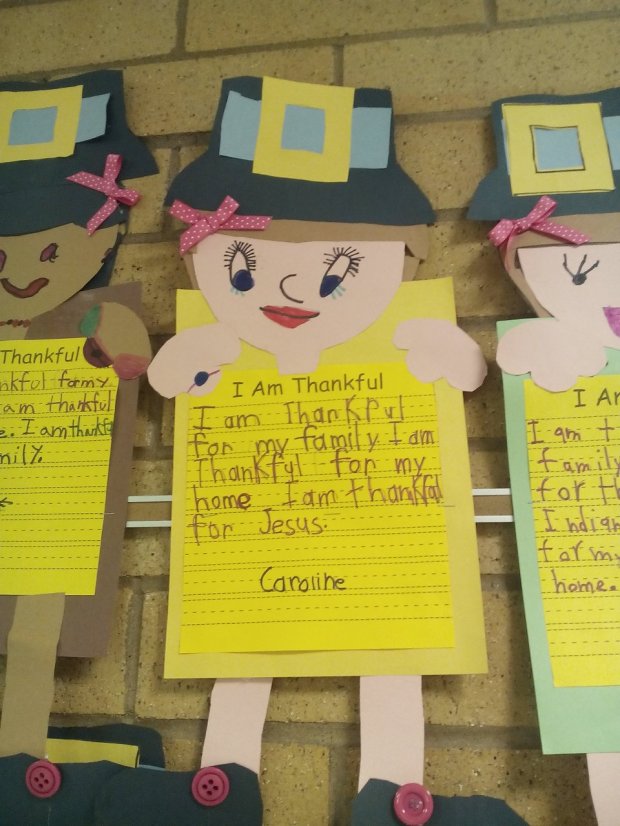 Thankful
nkful for my
am thankful
e. I am thankful
mily.
I Am Thankful
I am Thankful
for my family I am
Thankful for my
home I am thankful
for Jesus.
Caroline
I A
I am t
family
for th
Indian
for my
home.